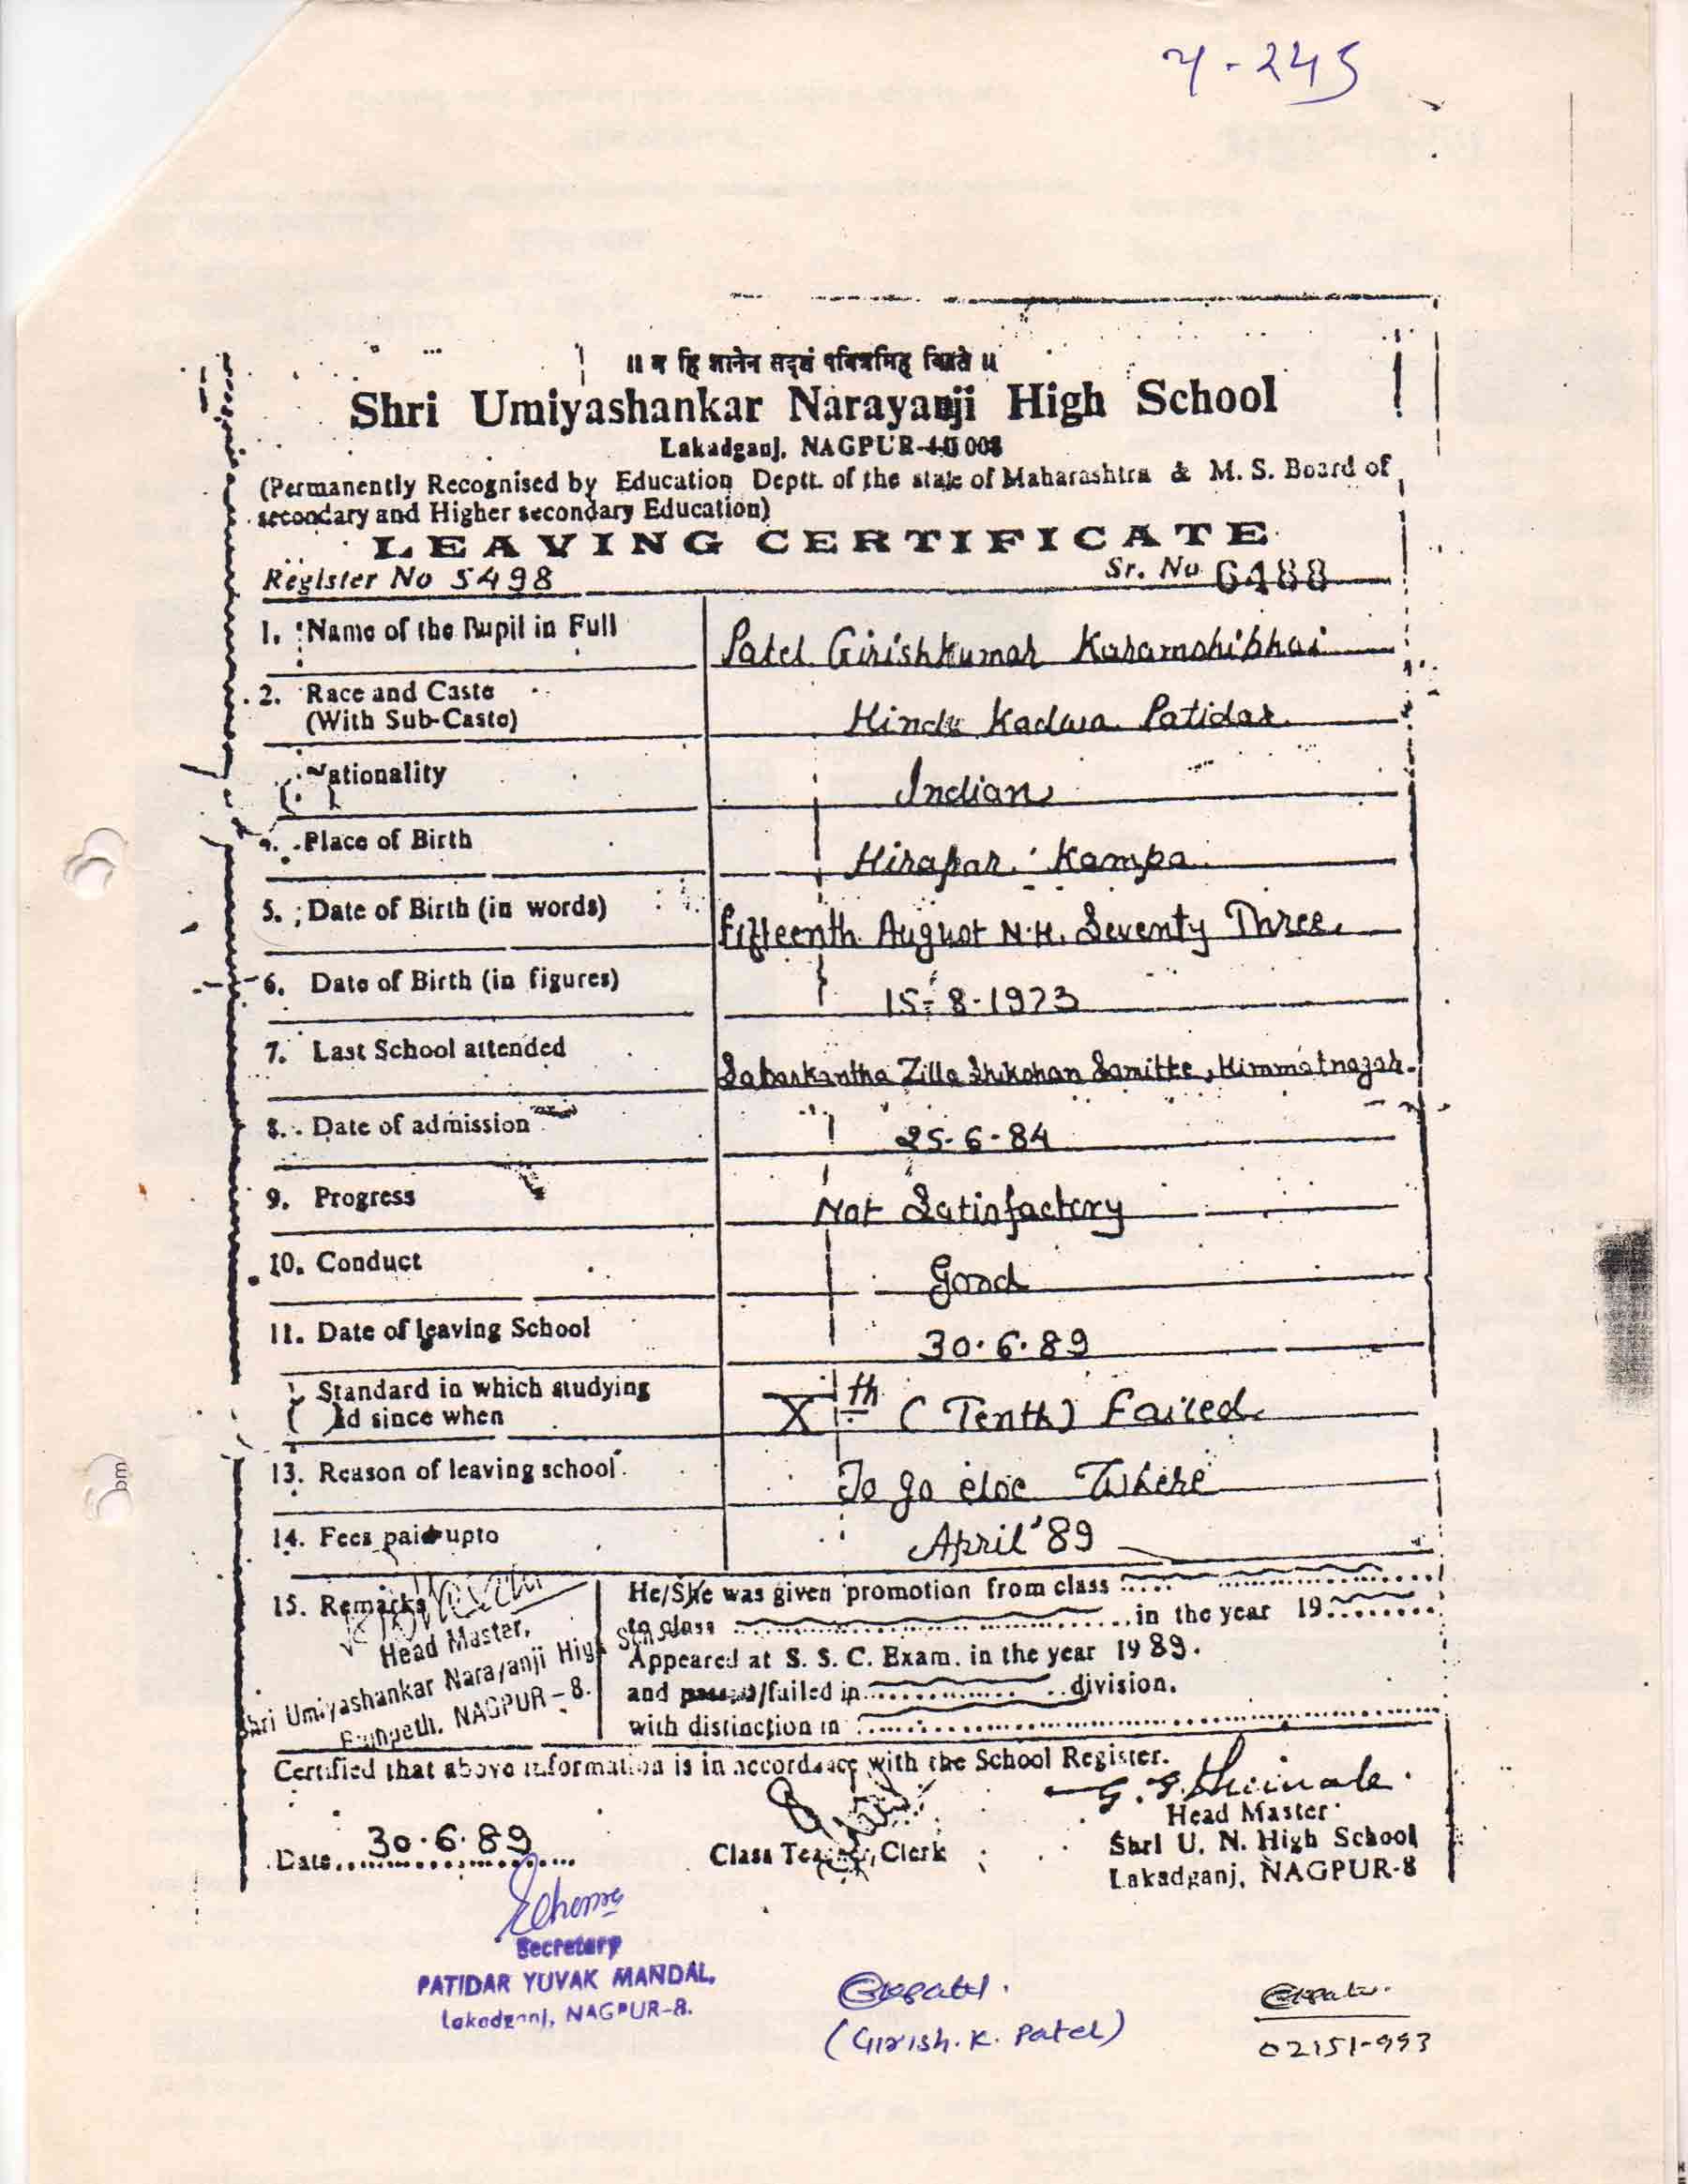 ५-२४५
॥ न हि ज्ञानेन सदृशं पवित्रमिह विद्यते ॥
Shri Umiyashankar Narayanji High School
Lakadganj, NAGPUR-440 008
(Permanently Recognised by Education Deptt. of the state of Maharashtra & M. S. Board of
secondary and Higher secondary Education)
LEAVING CERTIFICATE
Register No 5498 Sr. No 6488
1. Name of the Pupil in Full Patel Girishkumar Karamshibhai
2. Race and Caste
(With Sub-Caste) Hindu Kadwa Patidar
Nationality Indian
4. Place of Birth Hirapar Kampa
5. Date of Birth (in words) Fifteenth August N.H. Seventy Three
6. Date of Birth (in figures) 15-8-1973
7. Last School attended Sabarkantha Zilla Shikshan Samittee, Himmatnagar.
8. Date of admission 25-6-84
9. Progress Not Satisfactory
10. Conduct Good
11. Date of leaving School 30.6.89
Standard in which studying
and since when Xth (Tenth) Failed
13. Reason of leaving school To go else Where
14. Fees paid upto April '89
15. Remarks
Head Master,
Shri Umiyashankar Narayanji High School
NAGPUR-8.
He/She was given promotion from class
to class in the year 19
Appeared at S. S. C. Exam. in the year 1989.
and passed/failed in division.
with distinction in
Certified that above information is in accordance with the School Register.
Date 30.6.89
Class Teacher, Clerk
Head Master
Shri U. N. High School
Lakadganj, NAGPUR-8
Secretary
PATIDAR YUVAK MANDAL,
Lakadganj, NAGPUR-8.
(Girish. K. Patel)
02151-993